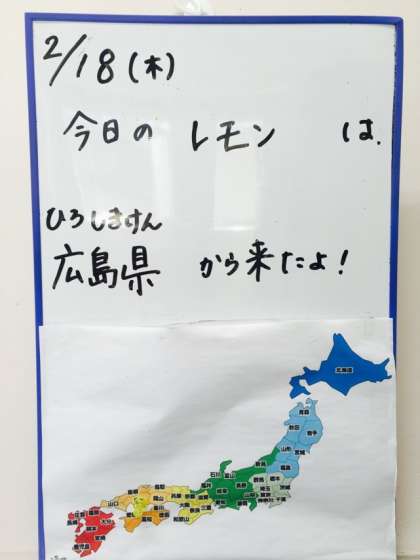 2/18(木)
今日の レモン は
ひろしまけん
広島県 から来たよ!
北海道
青森
秋田
岩手
山形
宮城
福島
新潟
石川 富山
福井
長野
群馬
栃木
茨城
埼玉
千葉
神奈川
三重
和歌山
大阪
兵庫
鳥取
岡山
島根
山口
高知
佐賀
福岡
長崎
大分
熊本
宮崎
鹿児島